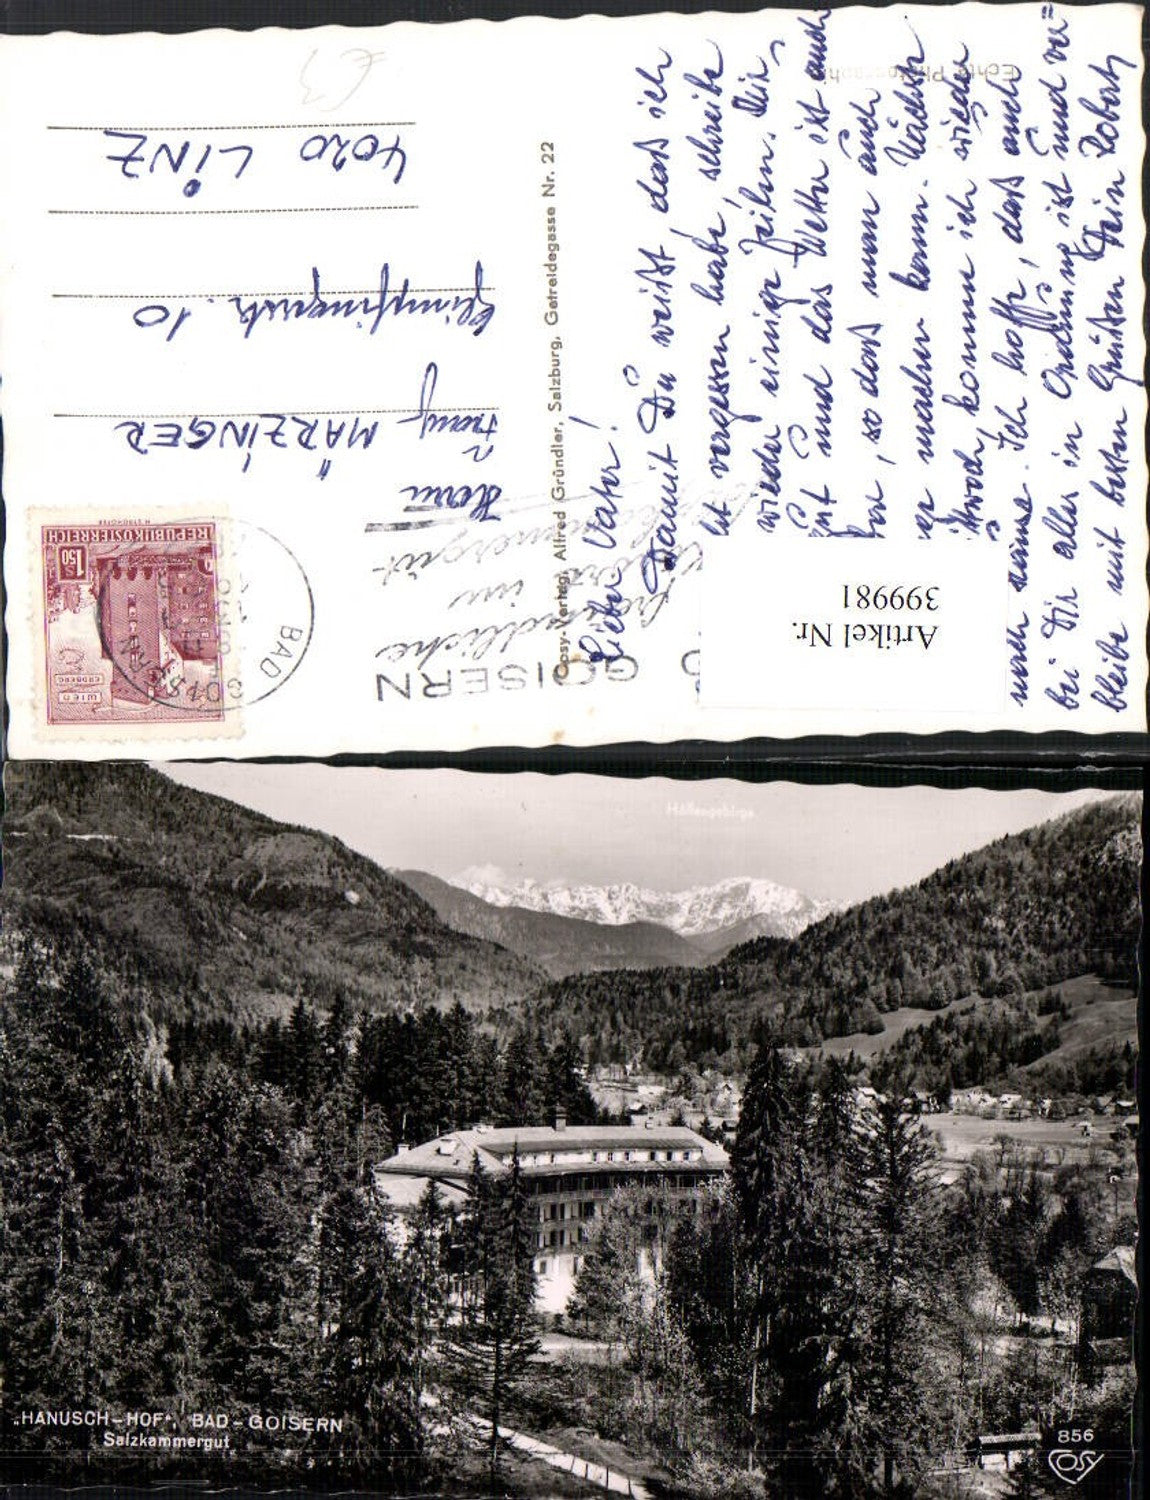 Echte Photographie
Lieber Vater!
Damit Du weißt, daß ich
vergessen habe, schreibe
wieder einige Zeilen. Mir
gut und das Wetter ist auch
so daß man auch
machen kann. Nächste
komme ich wieder
nach Hause. Ich hoffe, daß auch
bei Dir alles in Ordnung ist und ver=
bleibe mit besten Grüßen Dein Robert
Cosy-Verlag Alfred Gründler, Salzburg, Getreidegasse Nr. 22
Artikel Nr.
399981
GOISERN
im
REPUBLIK ÖSTERREICH
1.50
S
WIEN
ERDBERG
BAD GOISERN
Herrn
Franz MÄRZINGER
10
4020 LINZ
€3
Höllengebirge
„HANUSCH-HOF“, BAD-GOISERN
Salzkammergut
856
COSY